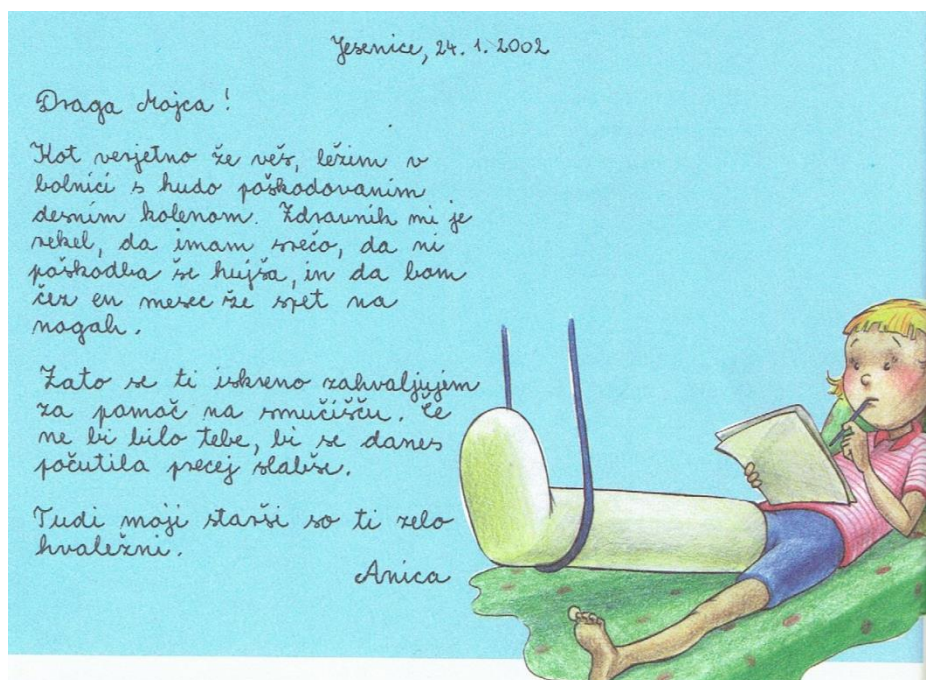 Jesenice, 24. 1. 2002
Draga Mojca!
Kot verjetno že veš, ležim v
bolnici s hudo poškodovanim
desnim kolenom. Zdravnik mi je
rekel, da imam srečo, da ni
poškodba še hujša, in da bom
čez en mesec že spet na
nogah.
Zato se ti iskreno zahvaljujem
za pomoč na smučišču. Če
ne bi bilo tebe, bi se danes
počutila precej slabše.
Tudi moji starši so ti zelo
hvaležni.
Anica